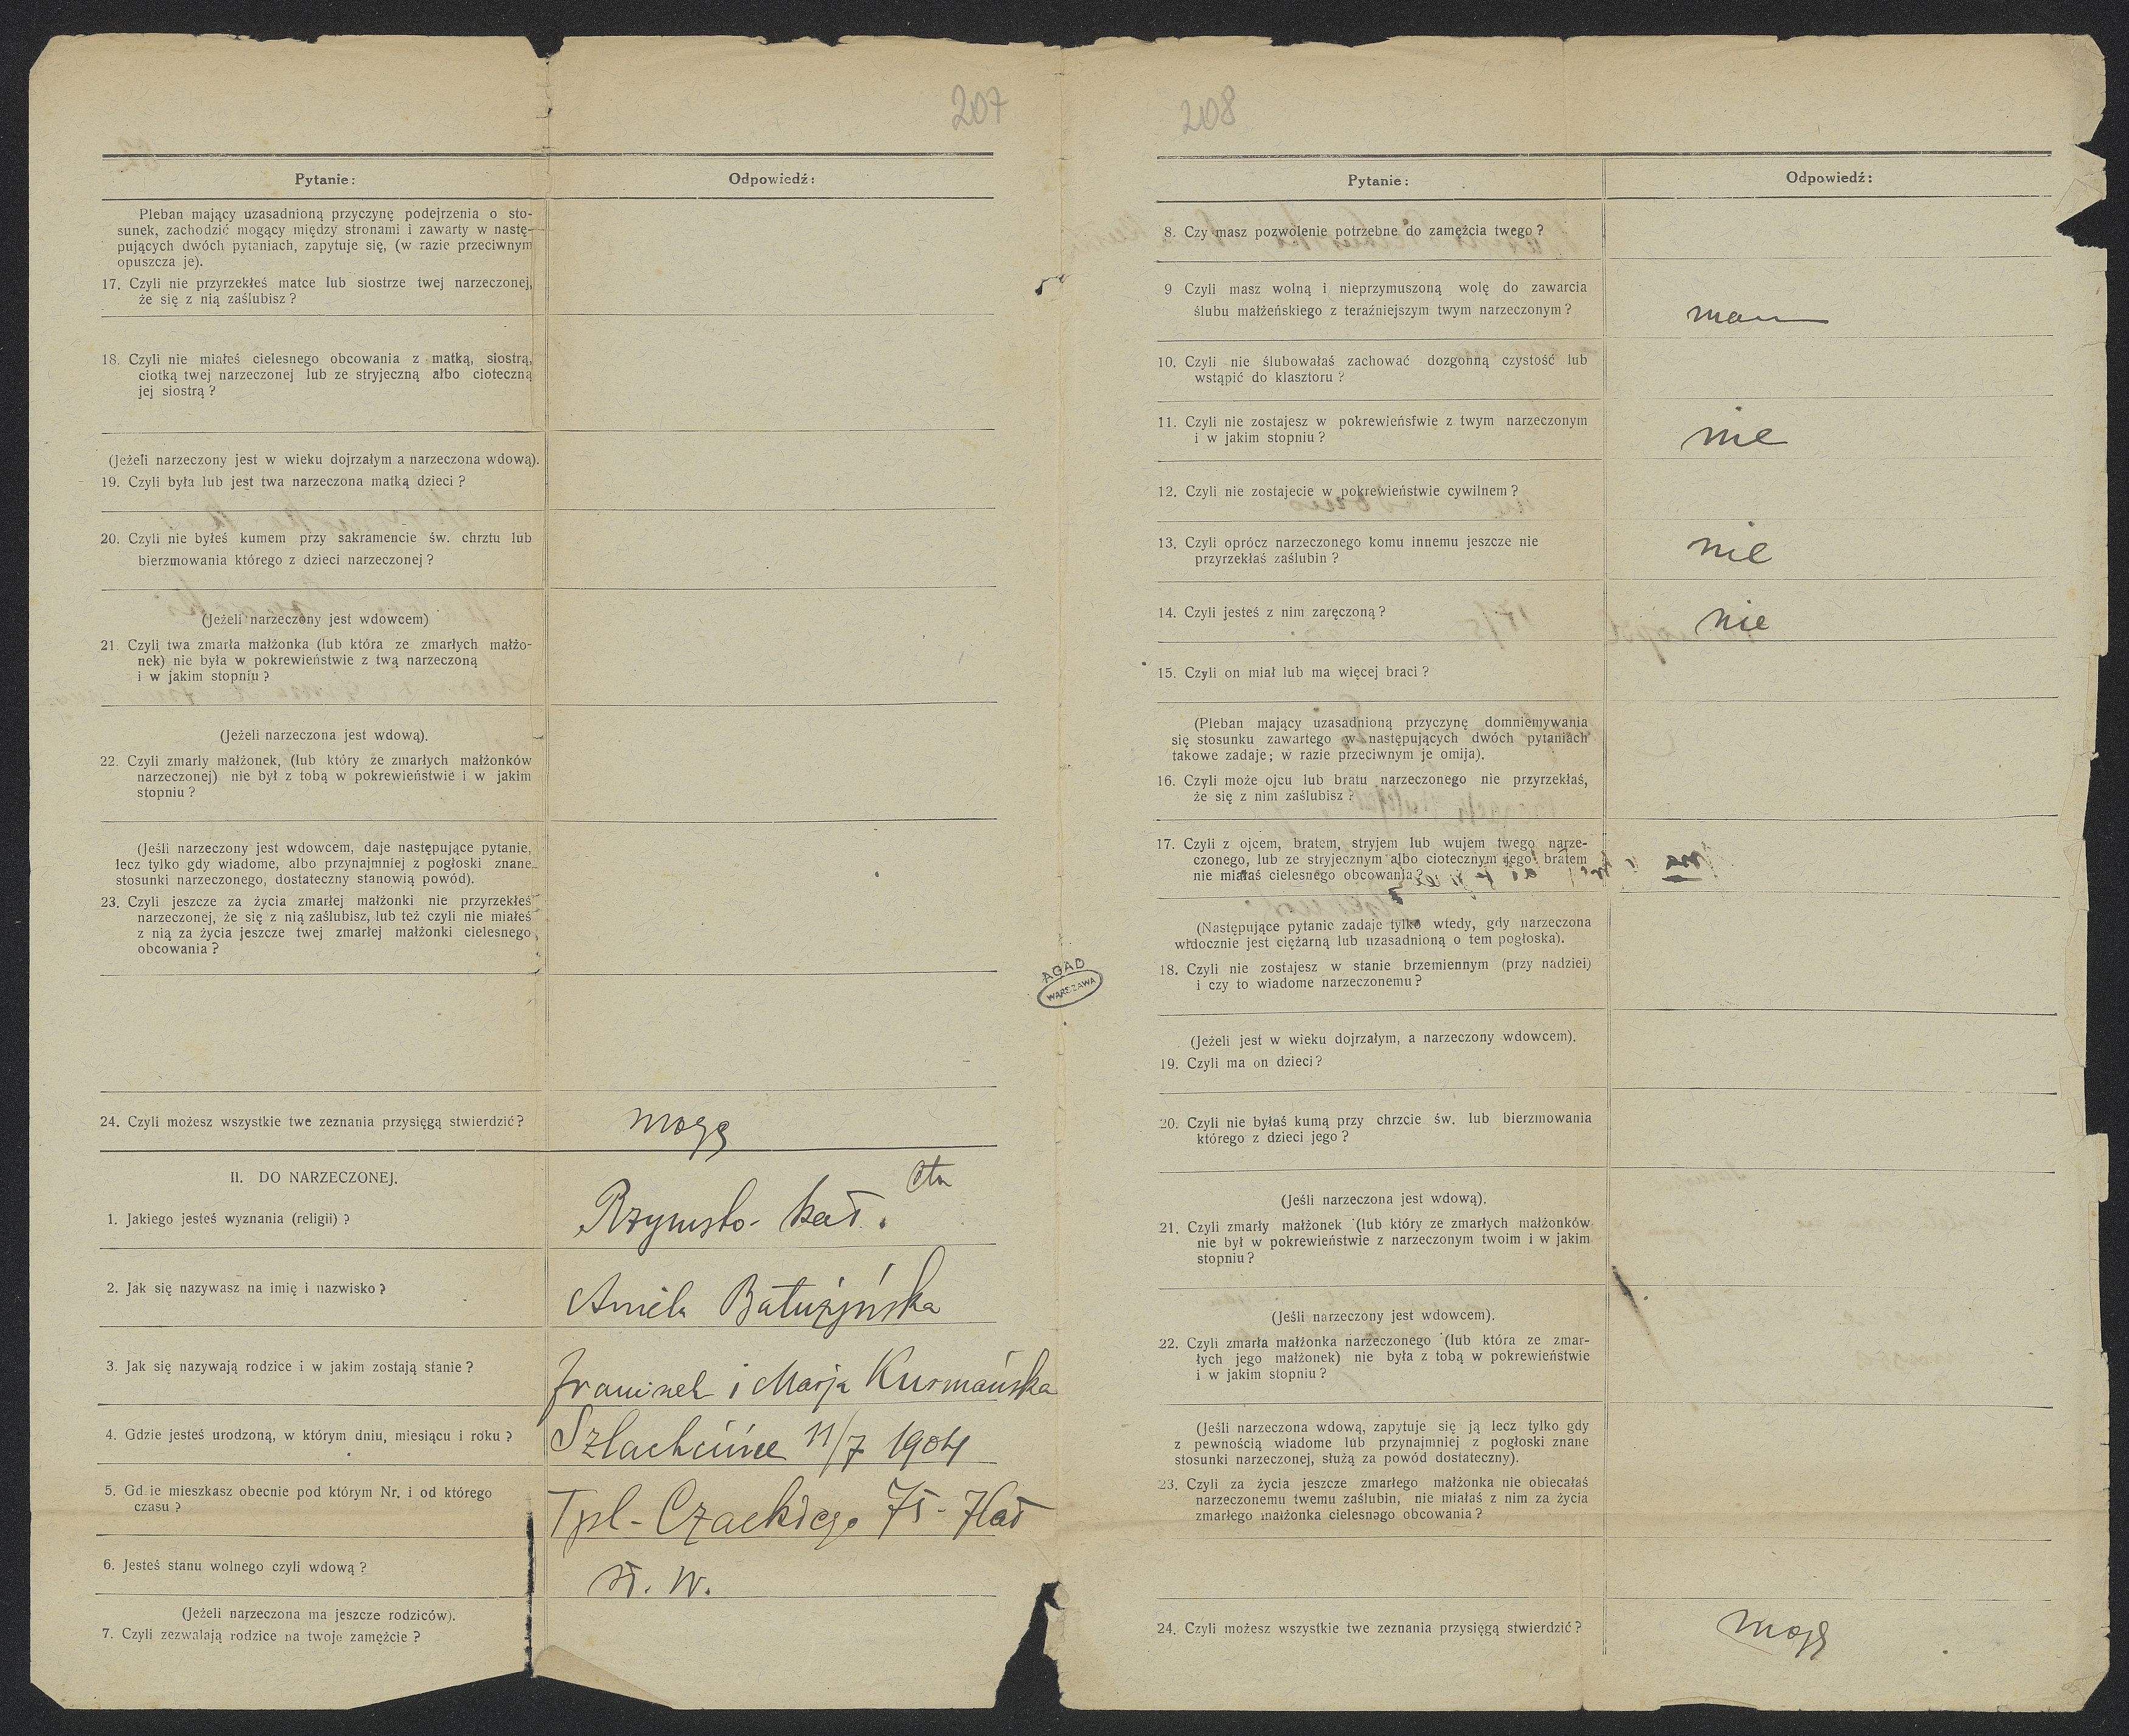 207
Pytanie:
Odpowiedź:
Pleban mający uzasadnioną przyczynę podejrzenia o sto-
sunek, zachodzić mogący między stronami i zawarty w nastę-
pujących dwóch pytaniach, zapytuje się, (w razie przeciwnym
opuszcza je).
17. Czyli nie przyrzekłeś matce lub siostrze twej narzeczonej,
że się z nią zaślubisz?
18. Czyli nie miałeś cielesnego obcowania z matką, siostrą,
ciotką twej narzeczonej lub ze stryjeczną albo cioteczną
jej siostrą?
(Jeżeli narzeczony jest w wieku dojrzałym a narzeczona wdową).
19. Czyli była lub jest twa narzeczona matką dzieci?
20. Czyli nie byłeś kumem przy sakramencie św. chrztu lub
bierzmowania którego z dzieci narzeczonej?
(Jeżeli narzeczony jest wdowcem)
21. Czyli twa zmarła małżonka (lub która ze zmarłych małżo-
nek) nie była w pokrewieństwie z twą narzeczoną
i w jakim stopniu?
(Jeżeli narzeczona jest wdową).
22. Czyli zmarły małżonek, (lub który że zmarłych małżonków
narzeczonej) nie był z tobą w pokrewieństwie i w jakim
stopniu?
(Jeśli narzeczony jest wdowcem, daje następujące pytanie,
lecz tylko gdy wiadome, albo przynajmniej z pogłoski znane
stosunki narzeczonego, dostateczny stanowią powód).
23. Czyli jeszcze za życia zmarłej małżonki nie przyrzekłeś
narzeczonej, że się z nią zaślubisz, lub też czyli nie miałeś
z nią za życia jeszcze twej zmarłej małżonki cielesnego
obcowania?
24. Czyli możesz wszystkie twe zeznania przysięgą stwierdzić?
mogę
II. DO NARZECZONEJ.
1. Jakiego jesteś wyznania (religii)?
Rzymsko-kat.
2. Jak się nazywasz na imię i nazwisko?
Aniela Batużyńska
3. Jak się nazywają rodzice i w jakim zostają stanie?
Franciszek i Marja Kurmańska
4. Gdzie jesteś urodzoną, w którym dniu, miesiącu i roku?
Szlachcińce 11/7 1904
5. Gd ie mieszkasz obecnie pod którym Nr. i od którego
czasu?
Tpl-Czackiego 75- 7 lat
6. Jesteś stanu wolnego czyli wdową?
st. w.
(Jeżeli narzeczona ma jeszcze rodziców).
7. Czyli zezwalają rodzice na twoje zamężcie?
AGAD
WARSZAWA
208
Pytanie:
Odpowiedź:
8. Czy masz pozwolenie potrzebne do zamężcia twego?
9 Czyli masz wolną i nieprzymuszoną wolę do zawarcia
ślubu małżeńskiego z teraźniejszym twym narzeczonym?
mam
10. Czyli nie ślubowałaś zachować dozgonną czystość lub
wstąpić do klasztoru?
11. Czyli nie zostajesz w pokrewieńsfwie z twym narzeczonym
i w jakim stopniu?
nie
12. Czyli nie zostajecie w pokrewieństwie cywilnem?
13. Czyli oprócz narzeczonego komu innemu jeszcze nie
przyrzekłaś zaślubin?
nie
14. Czyli jesteś z nim zaręczoną?
nie
15. Czyli on miał lub ma więcej braci?
(Pleban mający uzasadnioną przyczynę domniemywania
się stosunku zawartego w następujących dwóch pytaniach
takowe zadaje; w razie przeciwnym je omija).
16. Czyli może ojcu lub bratu narzeczonego nie przyrzekłaś,
że się z nim zaślubisz?
17. Czyli z ojcem, bratem, stryjem lub wujem twego narze-
czonego, lub ze stryjecznym albo ciotecznym jego bratem
nie miałaś cielesnego obcowania?
(Następujące pytanie zadaje tylko wtedy, gdy narzeczona
widocznie jest ciężarną lub uzasadnioną o tem pogłoska).
18. Czyli nie zostajesz w stanie brzemiennym (przy nadziei)
i czy to wiadome narzeczonemu?
(Jeżeli jest w wieku dojrzałym, a narzeczony wdowcem).
19. Czyli ma on dzieci?
20. Czyli nie byłaś kumą przy chrzcie św. lub bierzmowania
którego z dzieci jego?
(Jeśli narzeczona jest wdową).
21. Czyli zmarły małżonek (lub który ze zmarłych małżonków
nie był w pokrewieństwie z narzeczonym twoim i w jakim
stopniu?
(Jeśli narzeczony jest wdowcem).
22. Czyli zmarła małżonka narzeczonego (lub która ze zmar-
łych jego małżonek) nie była z tobą w pokrewieństwie
i w jakim stopniu?
(Jeśli narzeczona wdową, zapytuje się ją lecz tylko gdy
z pewnością wiadome lub przynajmniej z pogłoski znane
stosunki narzeczonej, służą za powód dostateczny).
23. Czyli za życia jeszcze zmarłego małżonka nie obiecałaś
narzeczonemu twemu zaślubin, nie miałaś z nim za życia
zmarłego małżonka cielesnego obcowania?
24. Czyli możesz wszystkie twe zeznania przysięgą stwierdzić?
mogę